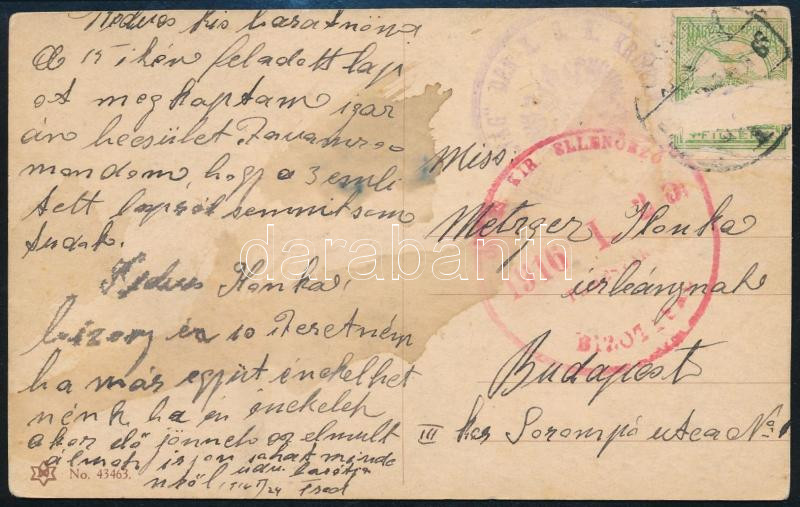 Kedves kis barátnőm
A 15 ikén feladott lap
ot megkaptam igaz
án becsület szavamra
mondom, hogy a 3 emli
tett lapról semmitsem
tudok.
Kedves Ilonka,
bizony én is szeretném
ha már együt énekelhet
nénk ha én énekelek
akor elő jönnek az elmult
álmok
1916 I/24
No. 43463.
Miss.
Metzger Ilonka
úrleánynak
Budapest
III ker Sorompó utca No 1
KIR ELLENŐRZŐ
1916 I 25
BIZOTTSÁG
darabanth